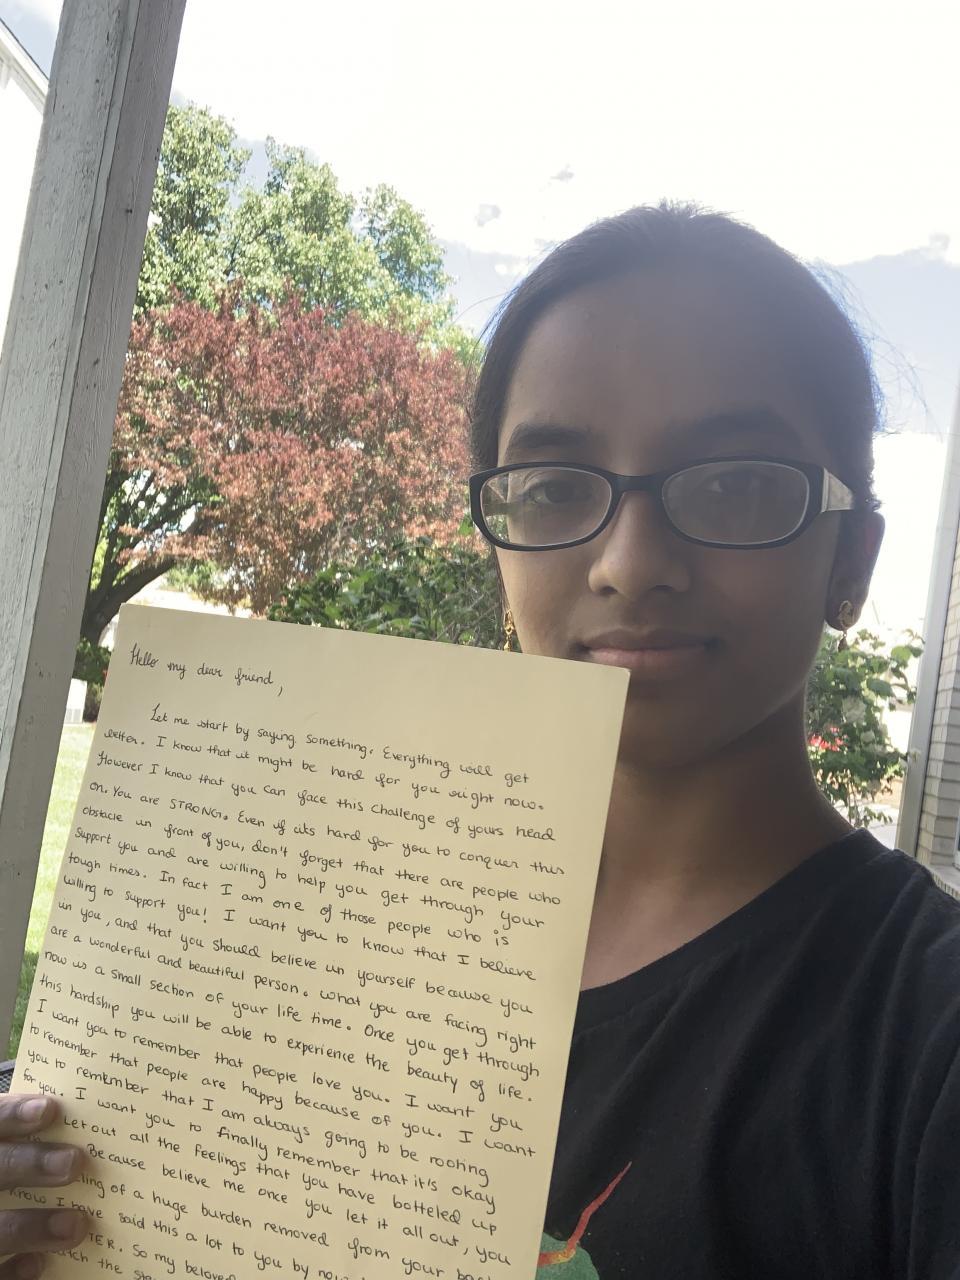 Hello my dear friend,
Let me start by saying something. Everything will get
better. I know that it might be hard for you right now.
However I know that you can face this challenge of yours head
on. You are STRONG. Even if its hard for you to conquer this
obstacle in front of you, don't forget that there are people who
support you and are willing to help you get through your
tough times. In fact I am one of those people who is
willing to support you! I want you to know that I believe
in you, and that you should believe in yourself because you
are a wonderful and beautiful person. What you are facing right
now is a small section of your life time. Once you get through
this hardship you will be able to experience the beauty of life.
I want you to remember that people love you. I want you
to remember that people are happy because of you. I want
you to remember that I am always going to be rooting
for you. I want you to finally remember that it's okay
Let out all the feelings that you have botteled up
Because believe me once you let it all out, you
of a huge burden removed from your
know I have said this a lot to you by now
So my
the